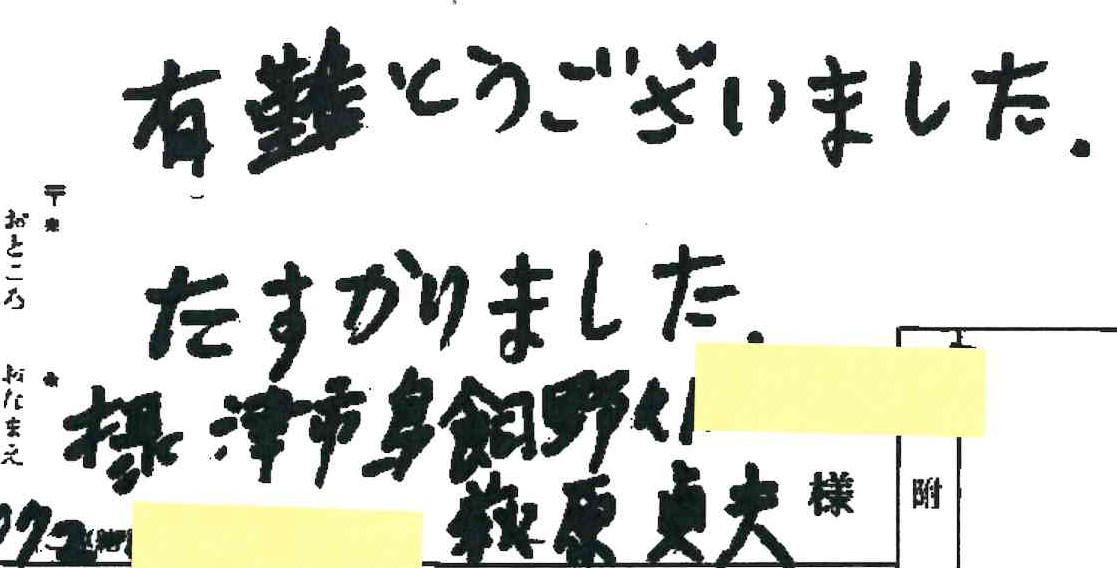 有難とうございました.
たすかりました.
〒
おところ
おなまえ
摂津市鳥飼野々1
萩原貞夫 様
附
072